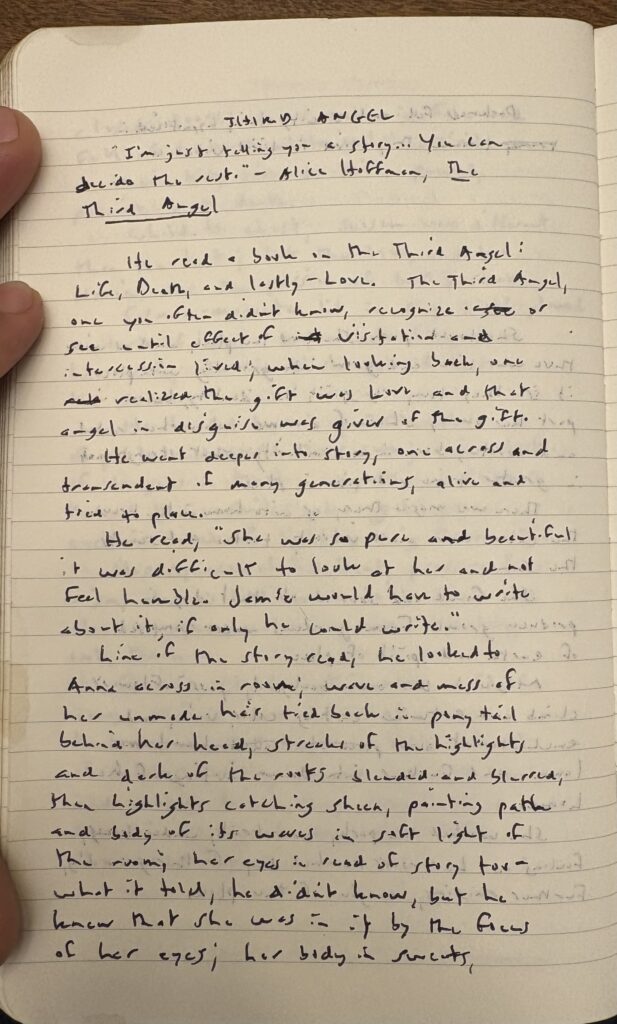 THIRD ANGEL
"I'm just telling you a story... You can
decide the rest." - Alice Hoffman, The
Third Angel
He read a book on the Third Angel:
Life, Death, and lastly - Love. The Third Angel,
one you often didn't know, recognize or
see until effect of visitation and
intercession lived; when looking back, one
realized the gift was Love and that
angel in disguise was giver of the gift.
He went deeper into story, one across and
transcendent of many generations, alive and
tied to place.
He read, "She was so pure and beautiful
it was difficult to look at her and not
feel humble. Jamie would have to write
about it, if only he could write."
Line of the story read, he looked to
Annie across in room; wave and mess of
her unmade hair tied back in pony tail
behind her head, streaks of the highlights
and dark of the roots blended and blurred,
then highlights catching sheen, painting path
and body of its waves in soft light of
the room; her eyes in read of story too-
what it told, he didn't know, but he
knew that she was in it by the focus
of her eyes; her body in sweats,